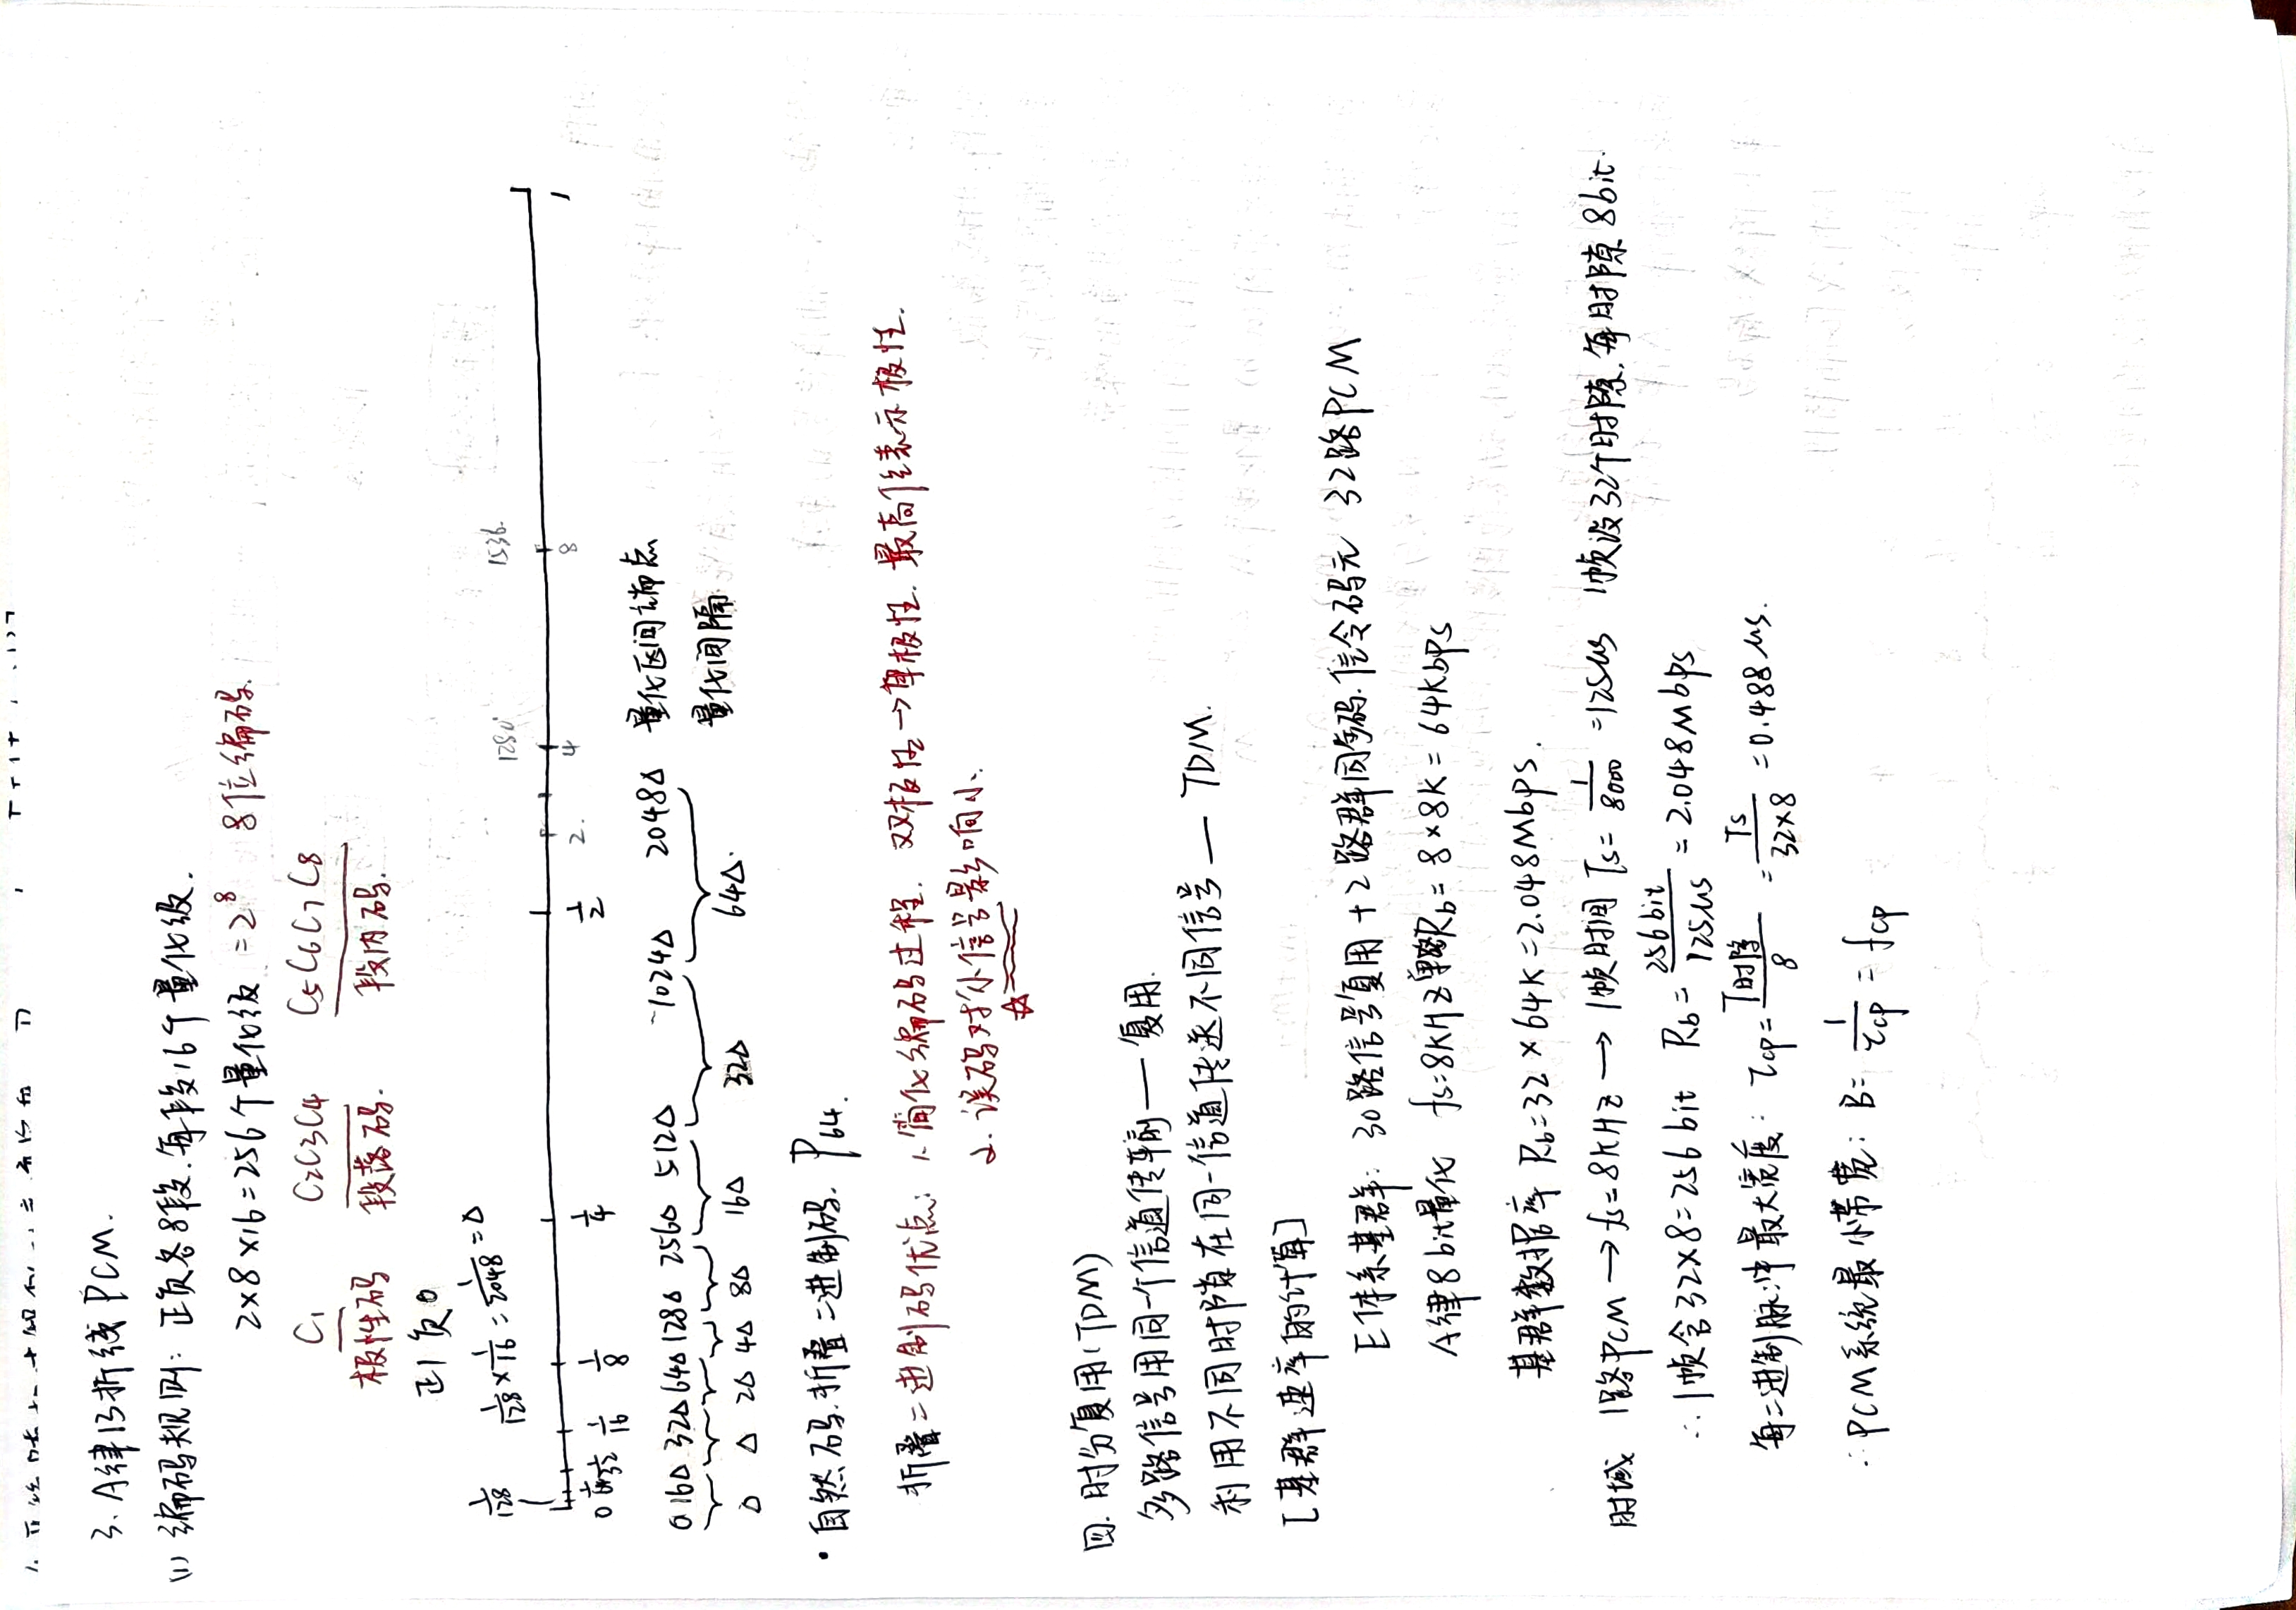 3. A律13折线 PCM.
(1) 编码规则: 正负各8段.每段16个量化级.
2×8×16=256个量化级 =2⁸ 8位编码.
C₁ C₂C₃C₄ C₅C₆C₇C₈
极性码 段落码. 段内码.
正1 负0
1/128 1/128×1/16=1/2048=Δ 1280 1536.
0 1/64 1/32 1/16 1/8 1/4 1/2 2. 4 8 1
0 16Δ 32Δ 64Δ 128Δ 256Δ 512Δ 1024Δ 2048Δ 量化区间端点
Δ Δ 2Δ 4Δ 8Δ 16Δ 32Δ 64Δ. 量化间隔
· 自然码.折叠二进制码. P64.
折叠二进制码优点: 1. 简化编码过程. 双极性→单极性. 最高位表示极性.
2. 误码对小信号影响小.
☆
四. 时分复用(TDM)
多路信号用同一个信道传输— 复用.
利用不同时隙在同一信道传送不同信号— TDM.
[基群速率的计算]
E体系基群: 30路信号复用+2路群同步码.信令码元 32路PCM
A律8bit量化 fs=8KHz 单路Rb=8×8K=64Kbps
基群数据率 Rb=32×64K=2.048Mbps.
时域 1路PCM→fs=8KHz→1帧时间 Ts=1/8000=125μs 1帧设32个时隙.每时隙8bit.
∴1帧含32×8=256bit Rb=256bit/125μs=2.048Mbps
每二进制脉冲最大宽度: τcp=T时隙/8=Ts/32×8=0.488μs.
∴PCM系统最小带宽: B=1/τcp=fcp